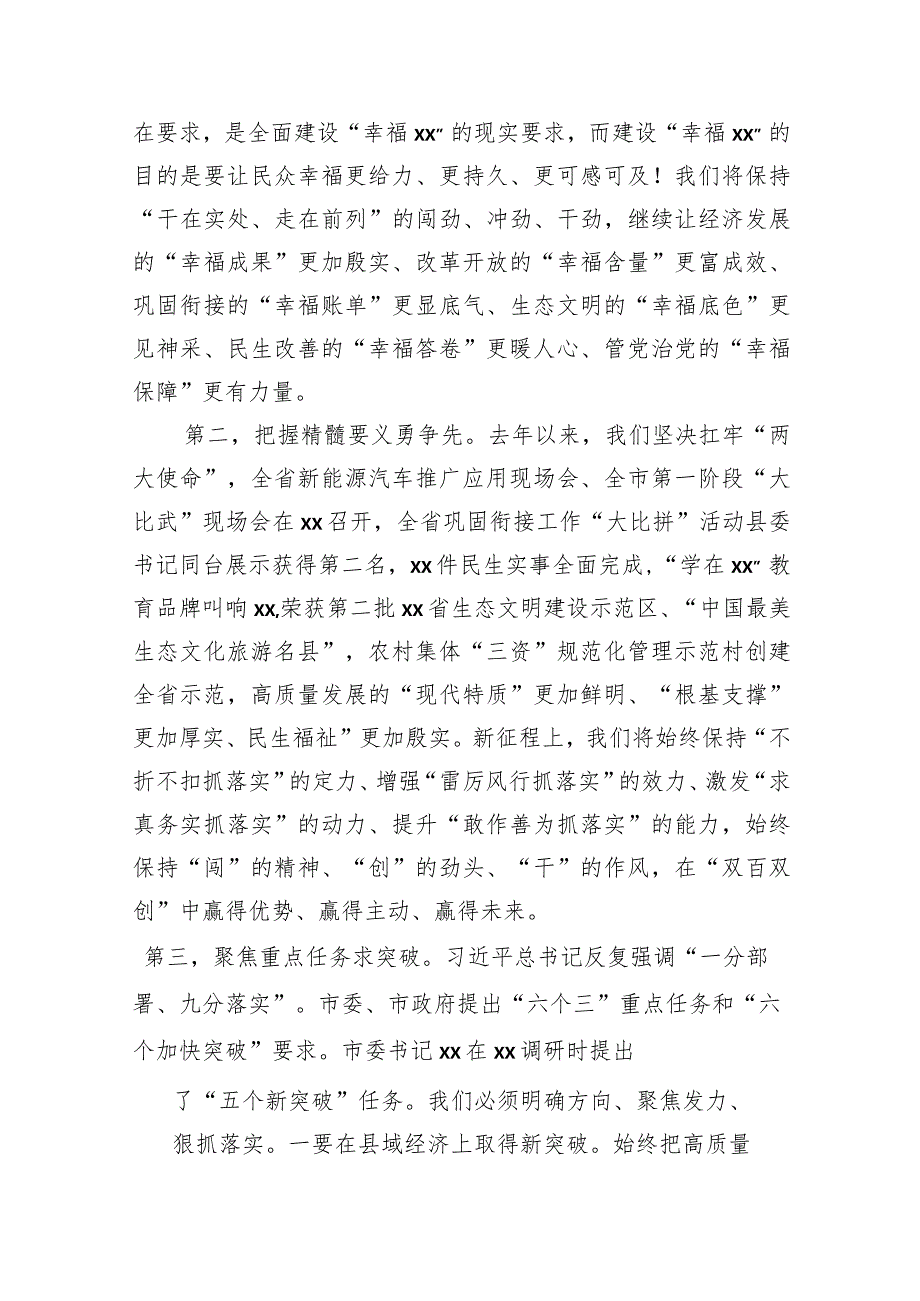 在要求，是全面建设“幸福xx”的现实要求，而建设“幸福xx”的
目的是要让民众幸福更给力、更持久、更可感可及！我们将保持
“干在实处、走在前列”的闯劲、冲劲、干劲，继续让经济发展
的“幸福成果”更加殷实、改革开放的“幸福含量”更富成效、
巩固衔接的“幸福账单”更显底气、生态文明的“幸福底色”更
见神采、民生改善的“幸福答卷”更暖人心、管党治党的“幸福
保障”更有力量。
第二，把握精髓要义勇争先。去年以来，我们坚决扛牢“两
大使命”，全省新能源汽车推广应用现场会、全市第一阶段“大
比武”现场会在xx召开，全省巩固衔接工作“大比拼”活动县委
书记同台展示获得第二名，xx件民生实事全面完成，“学在xx”教
育品牌叫响xx,荣获第二批xx省生态文明建设示范区、“中国最美
生态文化旅游名县”，农村集体“三资”规范化管理示范村创建
全省示范，高质量发展的“现代特质”更加鲜明、“根基支撑”
更加厚实、民生福祉”更加殷实。新征程上，我们将始终保持“不
折不扣抓落实”的定力、增强“雷厉风行抓落实”的效力、激发“求
真务实抓落实”的动力、提升“敢作善为抓落实”的能力，始终
保持“闯”的精神、“创”的劲头、“干”的作风，在“双百双
创”中赢得优势、赢得主动、赢得未来。
第三，聚焦重点任务求突破。习近平总书记反复强调“一分部
署、九分落实”。市委、市政府提出“六个三”重点任务和“六
个加快突破”要求。市委书记xx在xx调研时提出
了“五个新突破”任务。我们必须明确方向、聚焦发力、
狠抓落实。一要在县域经济上取得新突破。始终把高质量